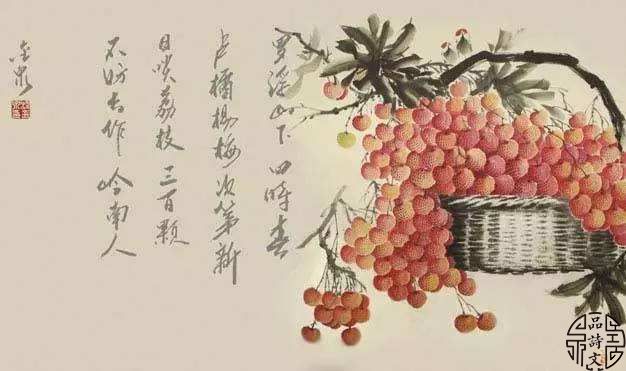 罗浮山下四時春
卢橘杨梅次第新
日啖荔枝三百颗
不妨长作岭南人
品詩文